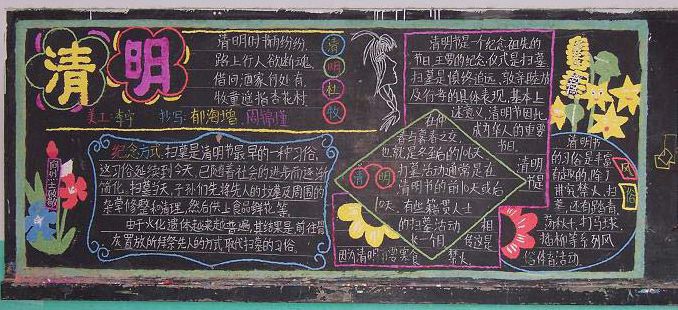 清明
清明时节雨纷纷,
路上行人欲断魂,
借问酒家何处有,
牧童遥指杏花村.
清
明
杜
牧
美工:李宁 抄写:郁海增、周锦瑾
向烈士致敬
纪念方式:扫墓是清明节最早的一种习俗,
这习俗延续到今天,已随着社会的进步而逐渐
简化,扫墓当天,子孙们先将先人的坟墓及周围的
杂草修整和清理,然后供上食品鲜花等.
由于火化遗体越来越普遍,其结果是前往骨
灰置放所拜祭先人的方式取代扫墓的习俗.
清明节是一个纪念祖先的
节日,主要的纪念仪式是扫墓,
扫墓是慎终追远、敦亲睦族
及行孝的具体表现,基本上
述意义,清明节因此
成为华人的重要
节日.
在仲
春与暮春之交,
也就是冬至后的106天.
扫墓活动通常是在
清明节的前10天或后
10天.有些籍贯人士
的扫墓活动
长一个月
清 明
清明
节是
相
传这是
因为清明节要寒食
禁火
清明节
的习俗是丰富
有趣的,除了
讲究禁火、扫
墓,还有踏青、
荡秋千、打马球、
插柳等系列风
俗体育活动
风
俗